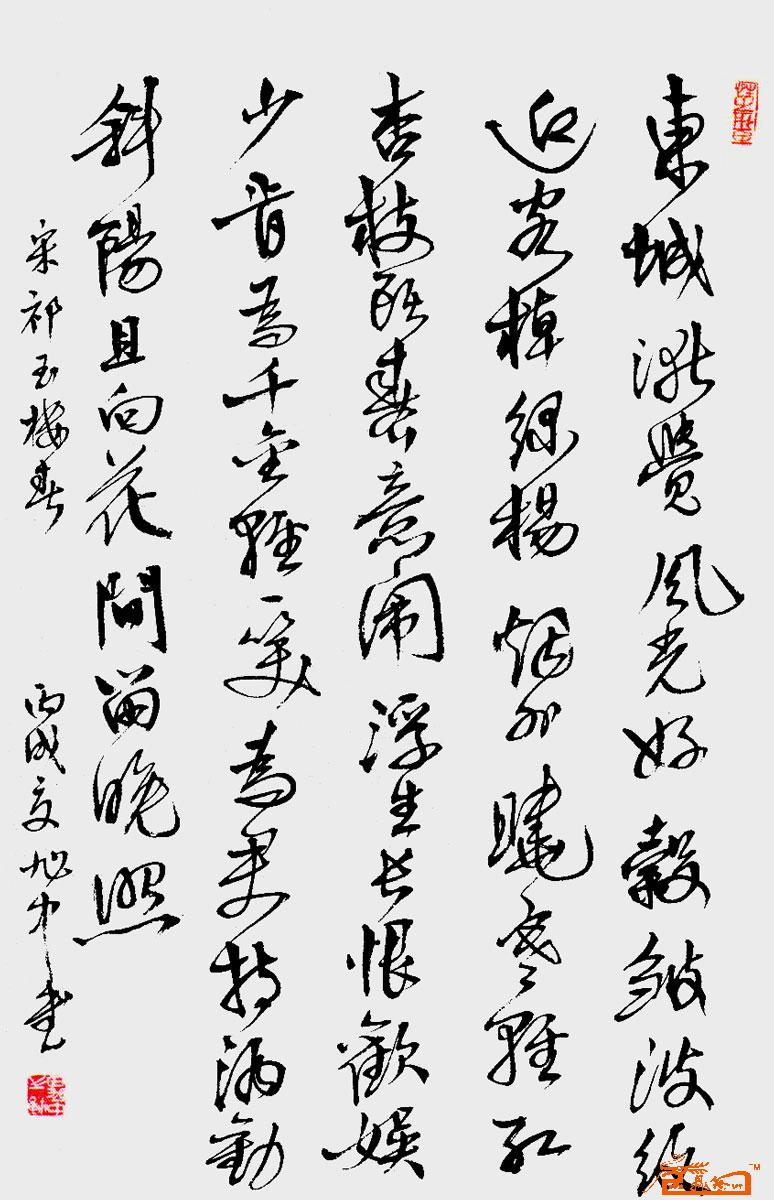 東城漸覺風光好縠皺波紋
迎客棹綠楊烟外曉寒輕紅
杏枝頭春意闹浮生長恨歡娛
少肯爲千金輕一笑爲君持酒勸
斜陽且向花間留晚照
宋祁玉樓春
丙戌夏旭中書